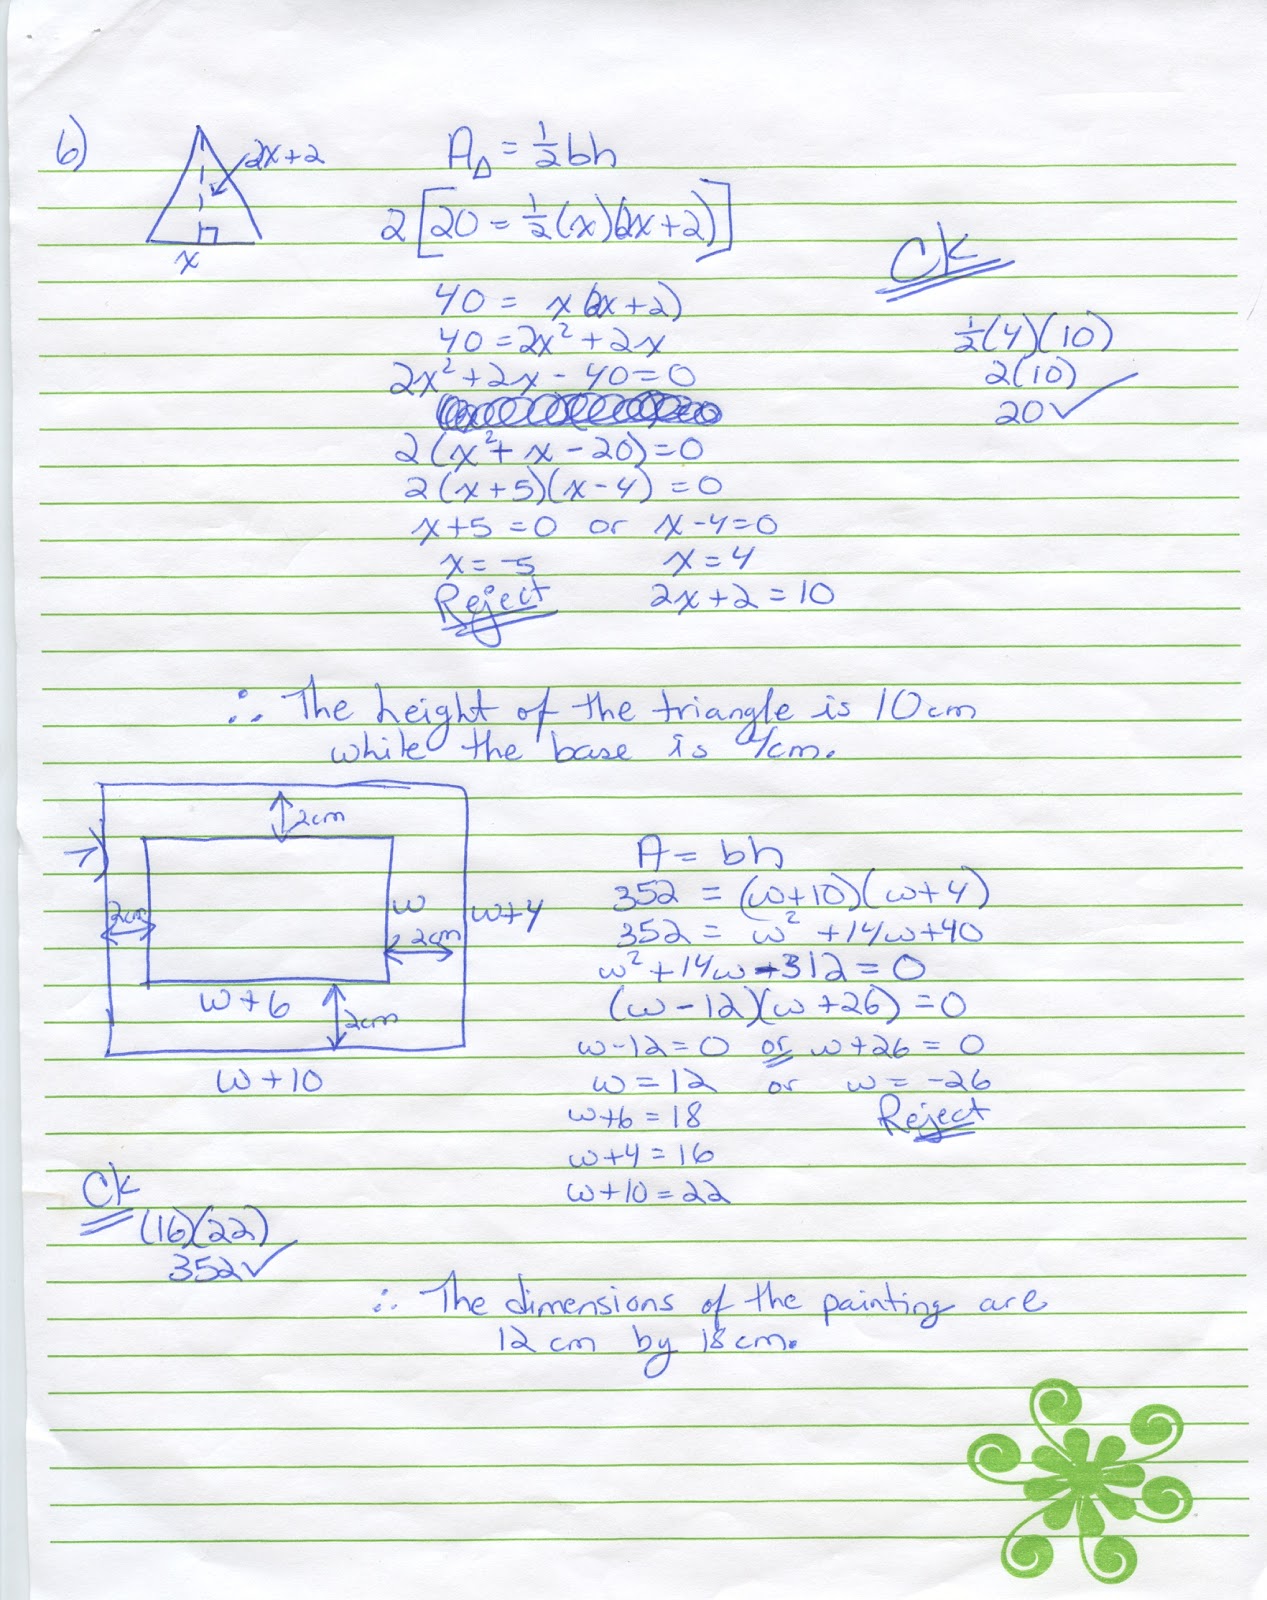 6)
2x+2
x
A△ = ½bh
2[20 = ½(x)(2x+2)]
40 = x(2x+2)
40 = 2x² + 2x
2x² + 2x - 40 = 0
2(x² + x - 20) = 0
2(x+5)(x-4) = 0
x+5 = 0 or x-4 = 0
x = -5 x = 4
Reject 2x+2 = 10
Ck
½(4)(10)
2(10)
20✓
∴ The height of the triangle is 10cm
while the base is 4cm.
7)
2cm
2cm
w
w+4
2cm
w+6
2cm
w+10
A = bh
352 = (w+10)(w+4)
352 = w² + 14w + 40
w² + 14w - 312 = 0
(w-12)(w+26) = 0
w-12 = 0 or w+26 = 0
w = 12 or w = -26
w+6 = 18 Reject
w+4 = 16
w+10 = 22
Ck
(16)(22)
352✓
∴ The dimensions of the painting are
12 cm by 18 cm.